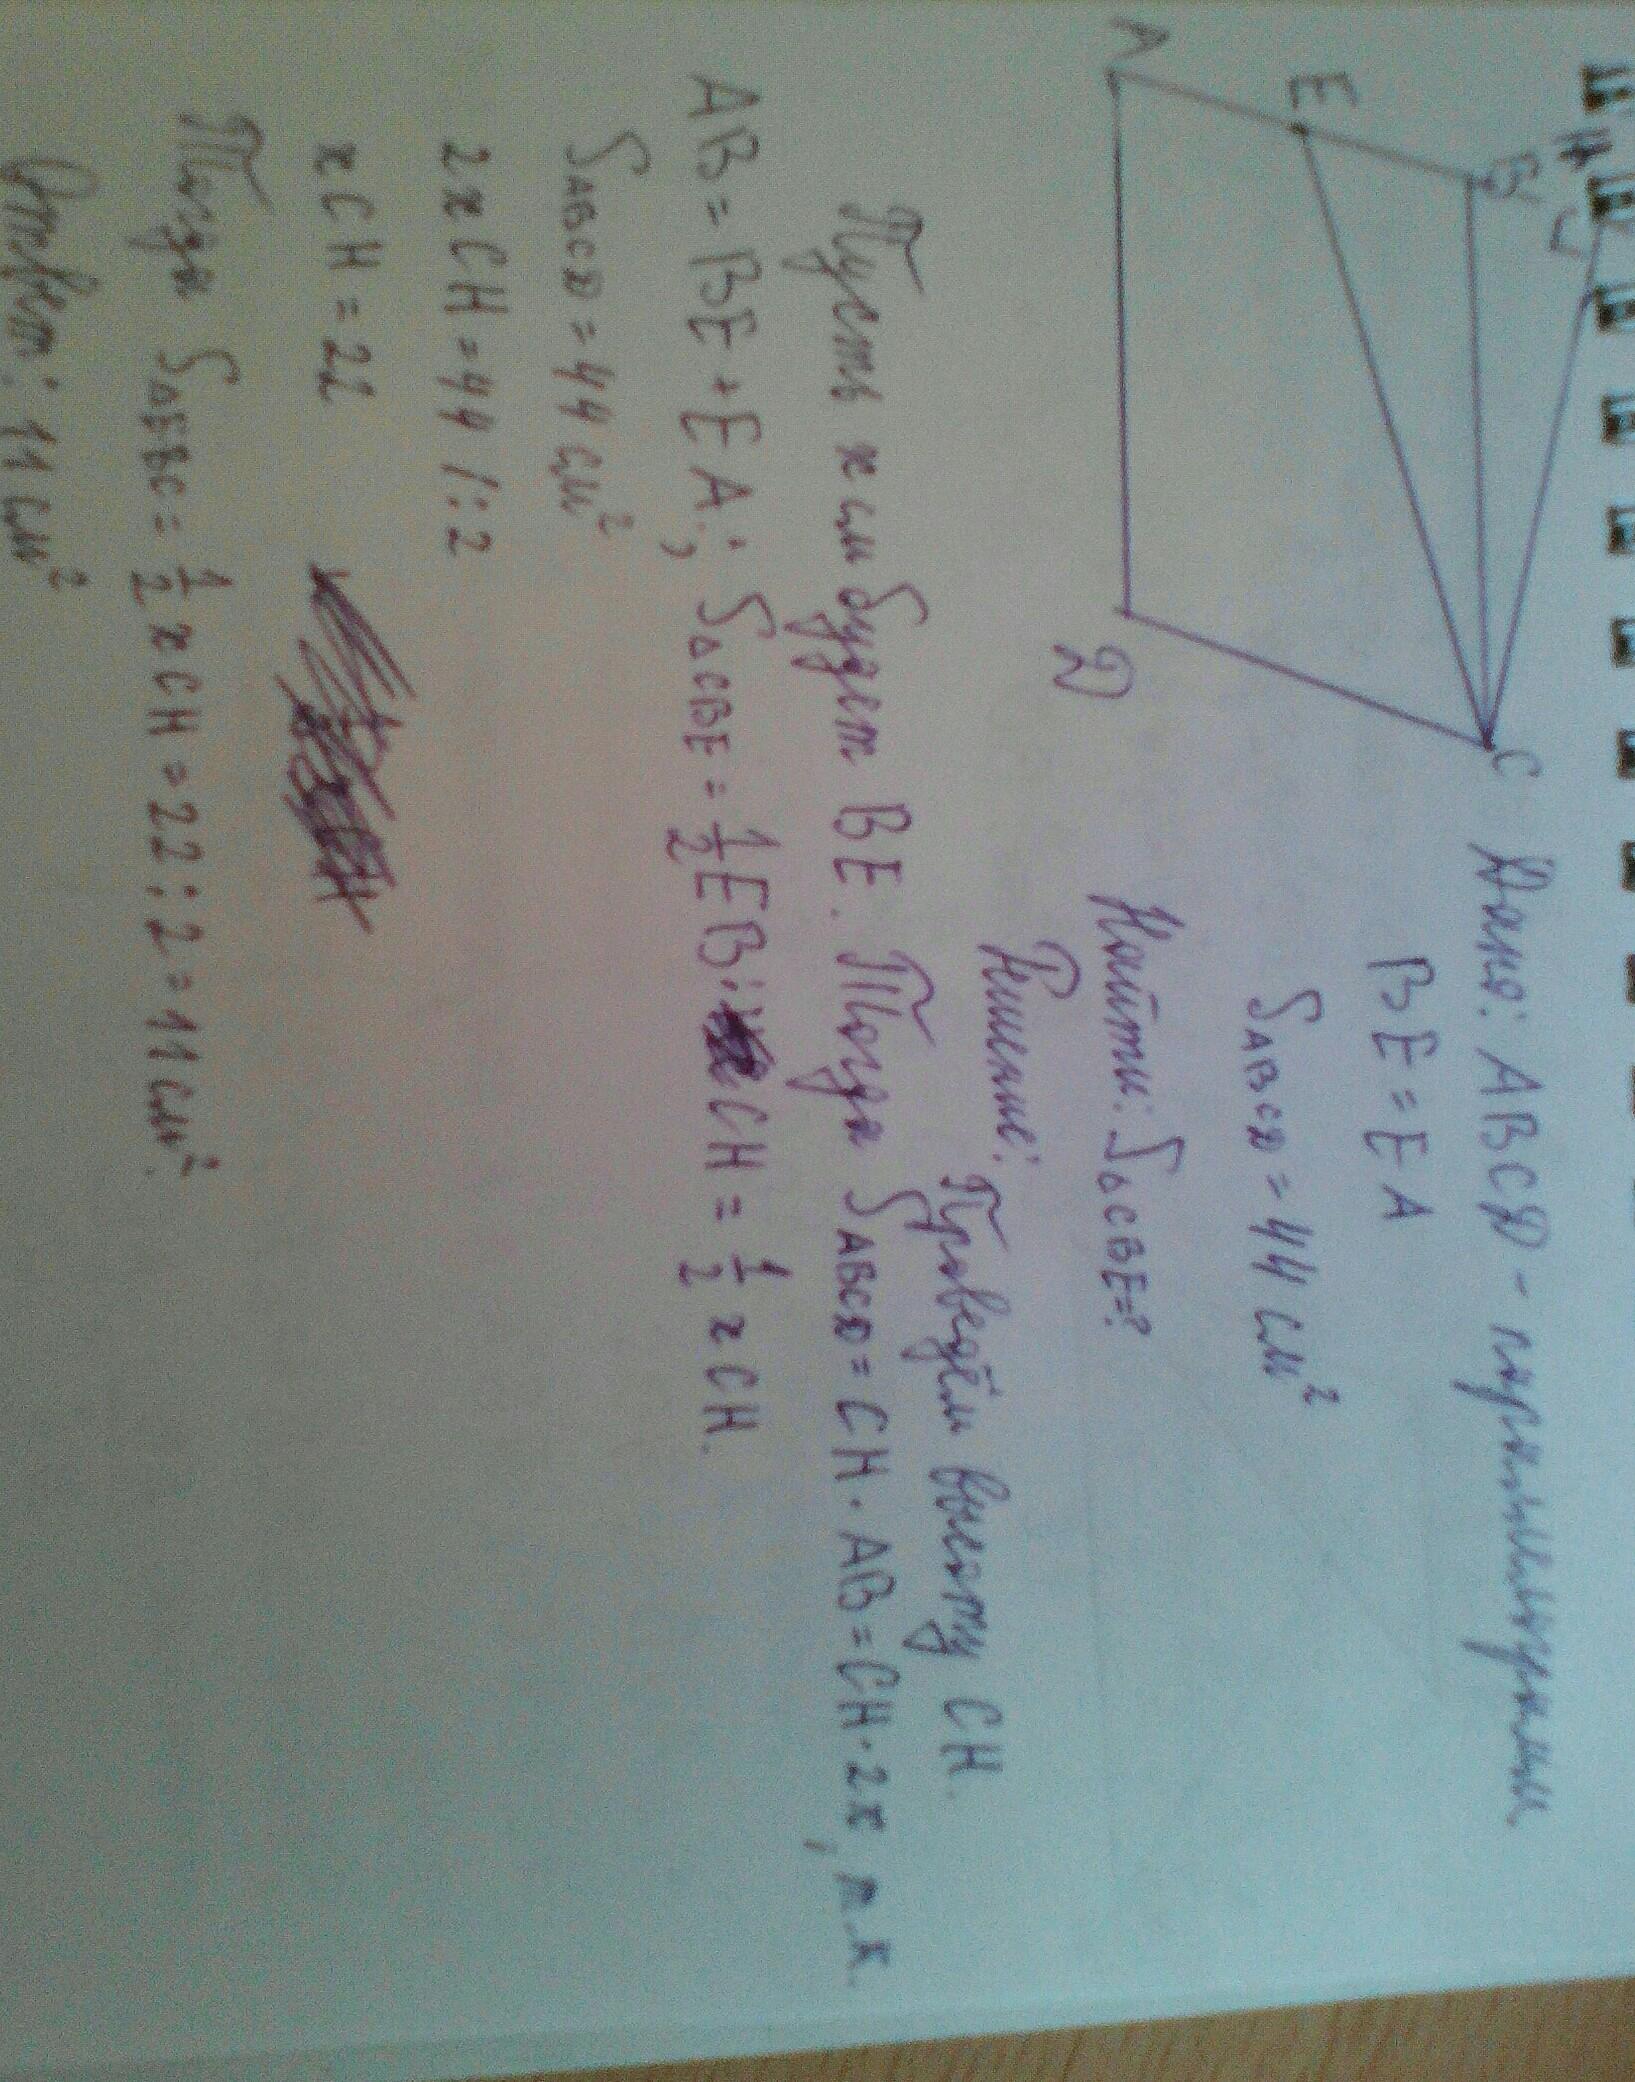 H
B
C
E
A
D
Дано: ABCD - параллелограмм
BE = EA
S ABCD = 44 см²
Найти: S△CBE=?
Решение: Проведём высоту CH.
Пусть x см будет BE. Тогда S ABCD = CH · AB = CH · 2x, т.к.
AB = BE + EA; S△CBE = 1/2 EB · CH = 1/2 x CH.
S ABCD = 44 см²
2xCH = 44 /:2
xCH = 22
Тогда S△EBC = 1/2 xCH = 22 : 2 = 11 см².
Ответ: 11 см²